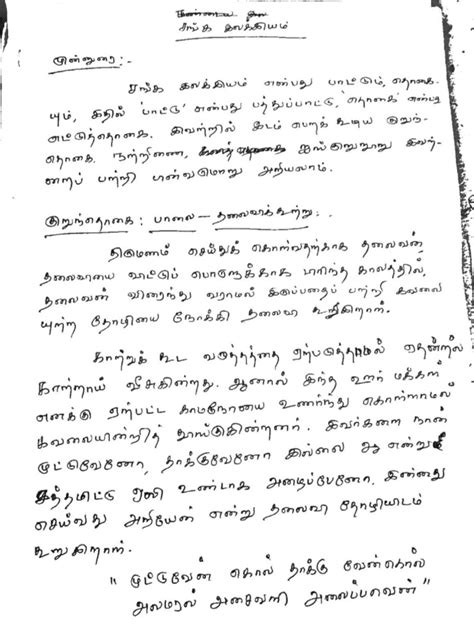 சங்க இலக்கியம்
முன்னுரை:-
சங்க இலக்கியம் என்பது பாட்டும், தொகை
யும், இதில் 'பாட்டு' என்பது பத்துப்பாட்டு, 'தொகை' என்பது
எட்டுத்தொகை. இவற்றில் இடம் பெறக் கூடிய குறுந்
தொகை, நற்றிணை, ஐங்குறுநூறு இவற்
றைப் பற்றி பின்வருமாறு அறியலாம்.
குறுந்தொகை: பாலை - தலைவிக்கூற்று:
திருமணம் செய்துக் கொள்வதற்காக தலைவன்
தலைவியை விட்டுப் பொருளுக்காக பிரிந்த காலத்தில்,
தலைவன் விரைந்து வராமல் இருப்பதைப் பற்றி கவலை
யுற்ற தோழியை நோக்கி தலைவி கூறுகிறாள்.
காற்றுக் கூட வருத்தத்தை ஏற்படுத்தாமல் தென்றல்
காற்றாய் வீசுகின்றது. ஆனால் இந்த ஊர் மக்கள்
எனக்கு ஏற்பட்ட காமநோயை உணர்ந்து கொள்ளாமல்
கவலையின்றித் தூங்குகின்றனர். இவர்களை நான்
முட்டுவேனோ, தாக்குவேனோ இல்லை ஆ என்று
சத்தமிட்டு ஒலி உண்டாக அழைப்பேனோ, இன்னது
செய்வது அறியேன் என்று தலைவி தோழியிடம்
கூறுகிறாள்.
" முட்டுவேன் கொல் தாக்கு வேன்கொல்
அலமரல் அசைவளி அலைப்பவென் "